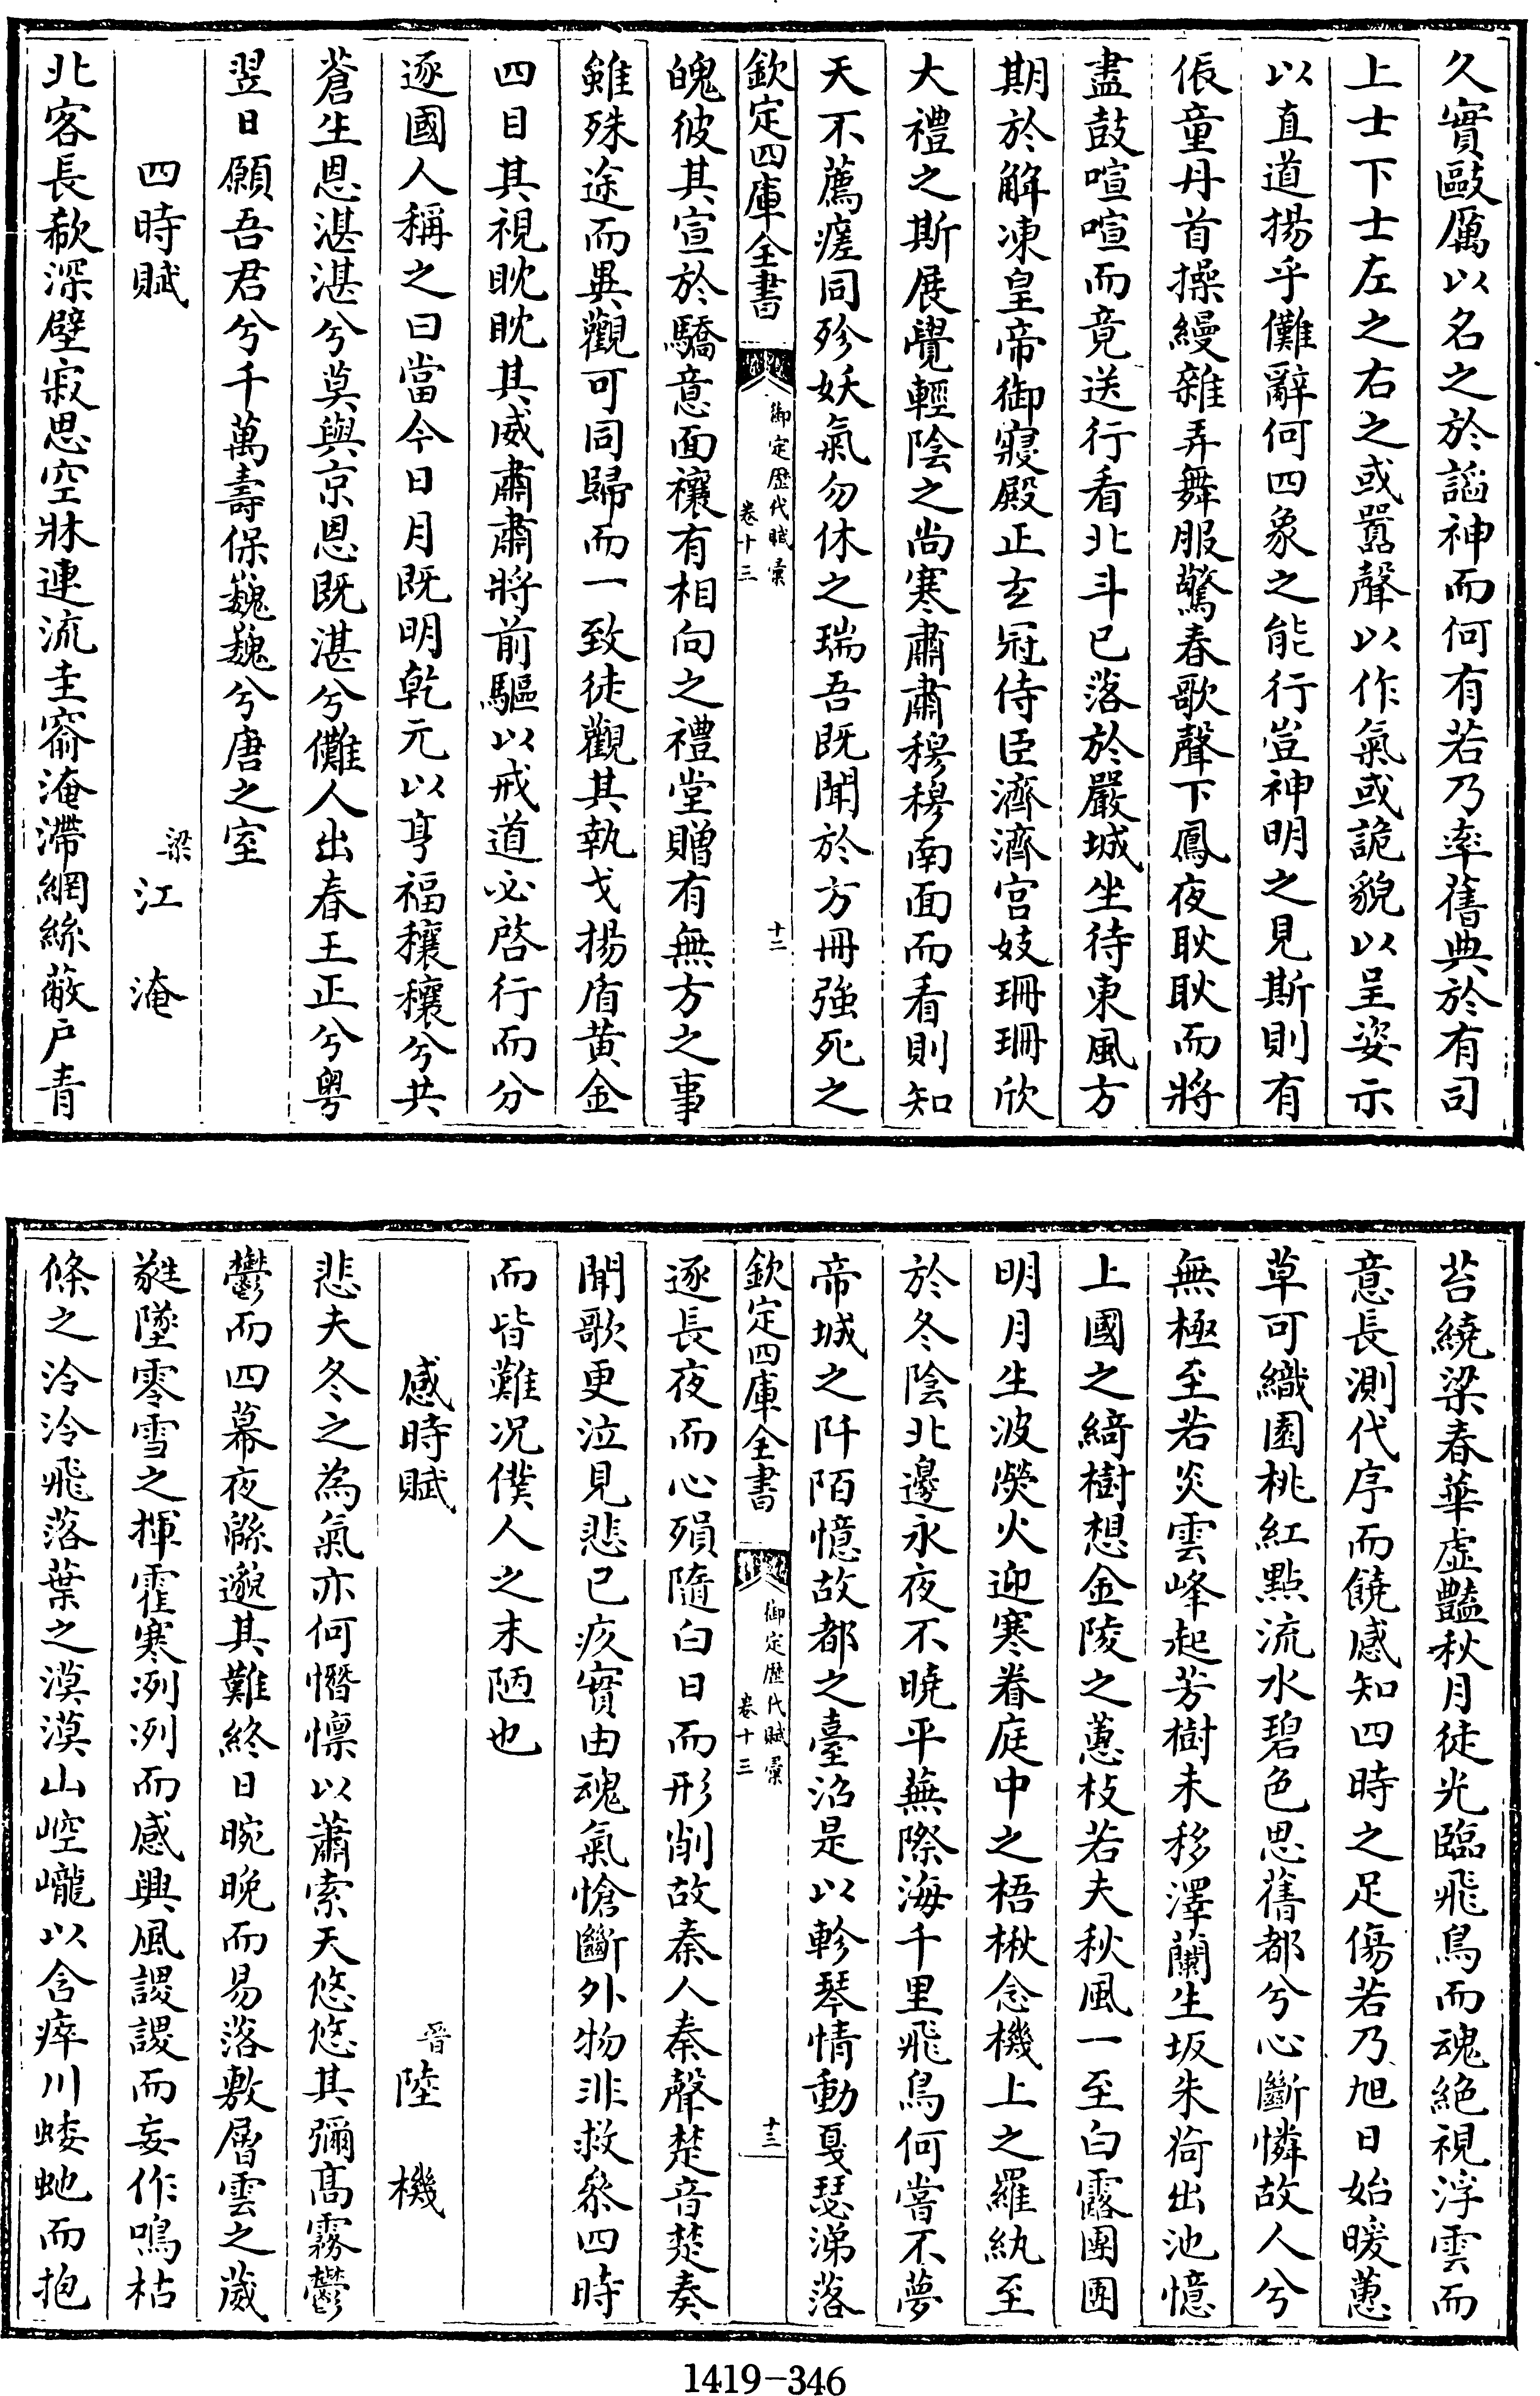 久實毆厲以名之於謟神而何有若乃率舊典於有司
上士下士左之右之或嚣聲以作氣或詭貌以呈姿示
以直道揚乎儺辭何四象之能行豈神明之見斯則有
侲童丹首操縵雜弄舞服驚春歌聲下鳳夜耿耿而將
盡鼓喧喧而竟送行看北斗已落於嚴城坐待東風方
期於解凍皇帝御寢殿正玄冠侍臣濟濟宫妓珊珊欣
大禮之斯展覺輕陰之尚寒肅肅穆穆南面而看則知
天不薦瘥同殄妖氣勿休之瑞吾既聞於方冊強死之
欽定四庫全書 御定歴代賦彙 卷十三 十二
魄彼其宣於驕意面禳有相向之禮堂贈有無方之事
雖殊途而異觀可同歸而一致徒觀其執戈揚盾黄金
四目其視眈眈其威肅肅將前驅以戒道必啓行而分
逐國人稱之曰當今日月既明乾元以亨福穰穰兮共
蒼生恩湛湛兮莫與京恩既湛兮儺人出春王正兮粤
翌日願吾君兮千萬壽保巍巍兮唐之室
四時賦 梁江淹
北客長欷深壁寂思空牀連流圭窬淹滯網絲蔽户青
苔繞梁春華虚豔秋月徒光臨飛鳥而魂絶視浮雲而
意長測代序而饒感知四時之足傷若乃旭日始暖蕙
草可織園桃紅點流水碧色思舊都兮心斷憐故人兮
無極至若炎雲峰起芳樹未移澤蘭生坂朱荷出池憶
上國之綺樹想金陵之蕙枝若夫秋風一至白露團團
明月生波熒火迎寒眷庭中之梧楸念機上之羅紈至
於冬陰北邊永夜不曉平蕪際海千里飛鳥何嘗不夢
帝城之阡陌憶故都之臺沼是以軫琴情動戛瑟涕落
欽定四庫全書 御定歴代賦彙 卷十三 十三
逐長夜而心殞隨白日而形削故秦人秦聲楚音楚奏
聞歌更泣見悲已疚實由魂氣愴斷外物非救參四時
而皆難况僕人之末陋也
感時賦 晉陸機
悲夫冬之為氣亦何憯懍以蕭索天悠悠其彌髙霧鬱
鬱而四幕夜緜邈其難終日晼晚而易落敷層雲之葳
蕤墜零雪之揮霍寒冽冽而感興風謖謖而妄作鳴枯
條之泠泠飛落葉之漠漠山崆巄以含瘁川蜲虵而抱
1419-346